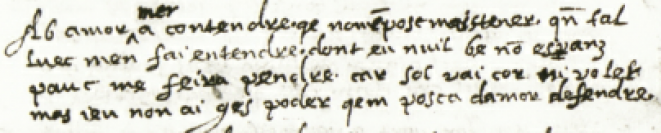 Ab amor mer a contendre. qe non posc maistener. qñ fal
luec men fai entendre. dont eu nuil be no esper anz
pauc me feira pendre. car sol vai cor ni voler
mas ieu non ai ges poder qem posca damor defendre.